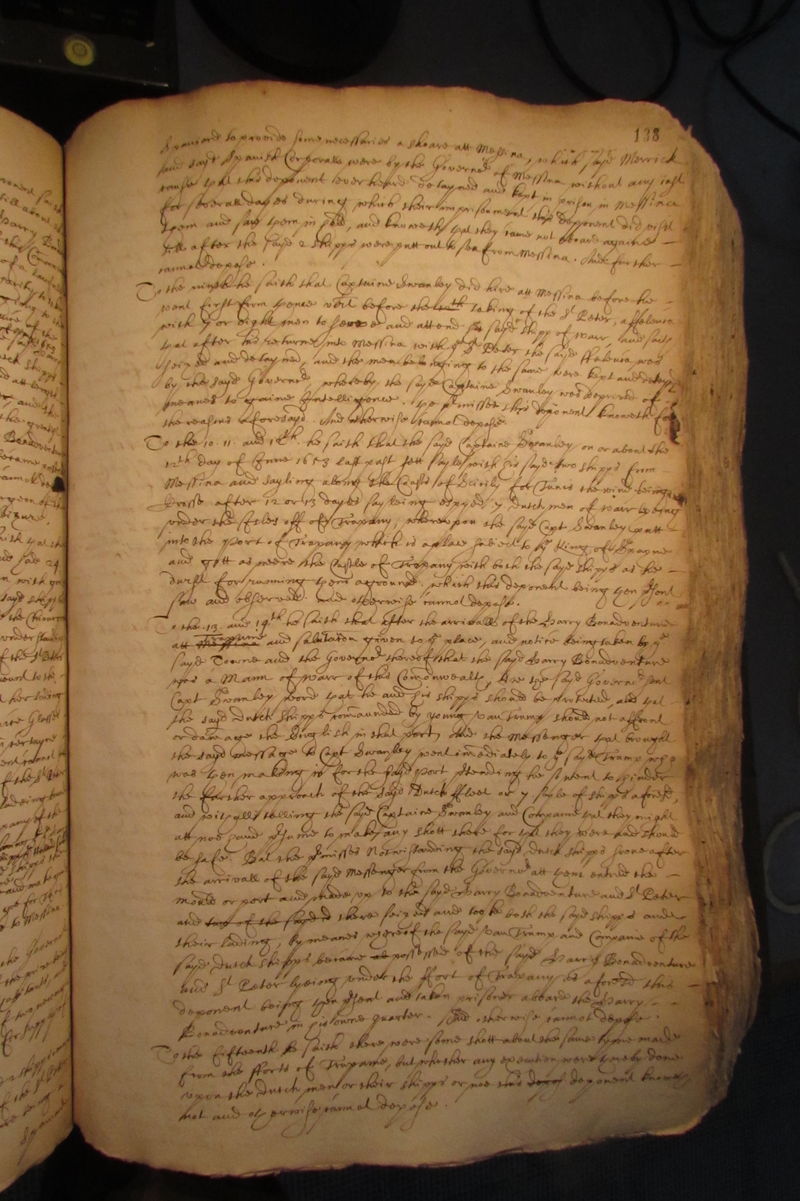 138
Spaniard to provide some necessaries a shoare att Messina, which sayd Merrick
and sayd Spanish Corporalls were by the Governor of Messina without any just
cause that this deponent ever heard detayned and kept in prison in Messina
for severall dayes during which their imprisonment this deponent did visit
them and saw them in and knoweth that they came not aboard againe
till after the sayd 2 shipps were putt out to sea from Messina. And further
cannot depose.
To the ninth he saith that Captaine Swanley did hire att Messina before he
went first from thence vizt before the taking of the St Peter, a ffelucca
with 7 or eight men to serve and attend his sayd shipp of warr, and saith
that after his returne into Messina with ye St Peter the sayd ffelucca was
seized and detayned, and the men belonging to the same were kept and
by the sayd Governor, whereby the sayd Captaine Swanley was deprived of
meanes to gaine Intelligence. The premisses this deponent knoweth for
the reasons aforesayd. And otherwise cannot depose.
To the 10. 11. and 12th. he saith that the sayd Captaine Swanley on or about the
12th day of June 1653 last past sett sayle with his sayd two shipps from
Messina and sayling along the Coast of Sicily for Tunis the wind being
Crosse after 12 or 13 dayes sayling espyed 7 dutch men of warr lyeing
under the Isles off of Trapany, whereupon the sayd Capt Swanley putt
into the Port of Trapany which is a place subiect to the King of Spayne
and gott as neere the Castle of Trapany with both the sayd shipps as he
durst for running them aground, which this deponent being then present
saw and observed. And otherwise cannot depose.
To the 13. and 14th he saith that after the arrivall of the Harry Bonadventure
att Trapany and salutation given to the place, and notice being taken by ye
sayd Towne and the Governor thereof that the sayd Harry Bonadventure
was a Mann of warr of this Comonwealth, the sayd Governor sent
Capt Swanley word that he and his shipps should be protected, and that
the sayd dutch shipps comaunded by young van Trump should not affront
or damage the English in that port, And the Messenger that brought
the sayd message to Capt Swanley went immediately to ye sayd Trump who
was then making in for the sayd Port pretending he went to hinder
the further approach of the sayd Dutch ffleet or 7 sayle of shipps aforesd,
and withall telling the sayd Captaine Swanley and Companie that they might
att noe hand presume to make any shott there for that they were and should
be safe. But the premisses Notwithstanding the sayd dutch shipps soone after
the arrivall of the sayd Messenger from the Governor att them entred the
mould or port and made up to the sayd Harry Bonadventure and St Peter
and two of the sayd there seized and tooke both the sayd shipps and
their lading, by meanes whereof the sayd van Trump and Companie of the
sayd dutch shipps became possessed of the sayd Harry Bonadventure
and St Peter lyeing under the ffort of Trapany as aforesd this
deponent being then present and taken prisoner aboard the Harry
Bonadventure in his owne quarter. And otherwise cannot depose.
To the fifteenth he saith there were some shott about the same tyme made
from the ffortt of Trapany, but whether any execution were thereby done
upon the dutch men or their shipps or noe this deponent knoweth
not and otherwise cannot depose.